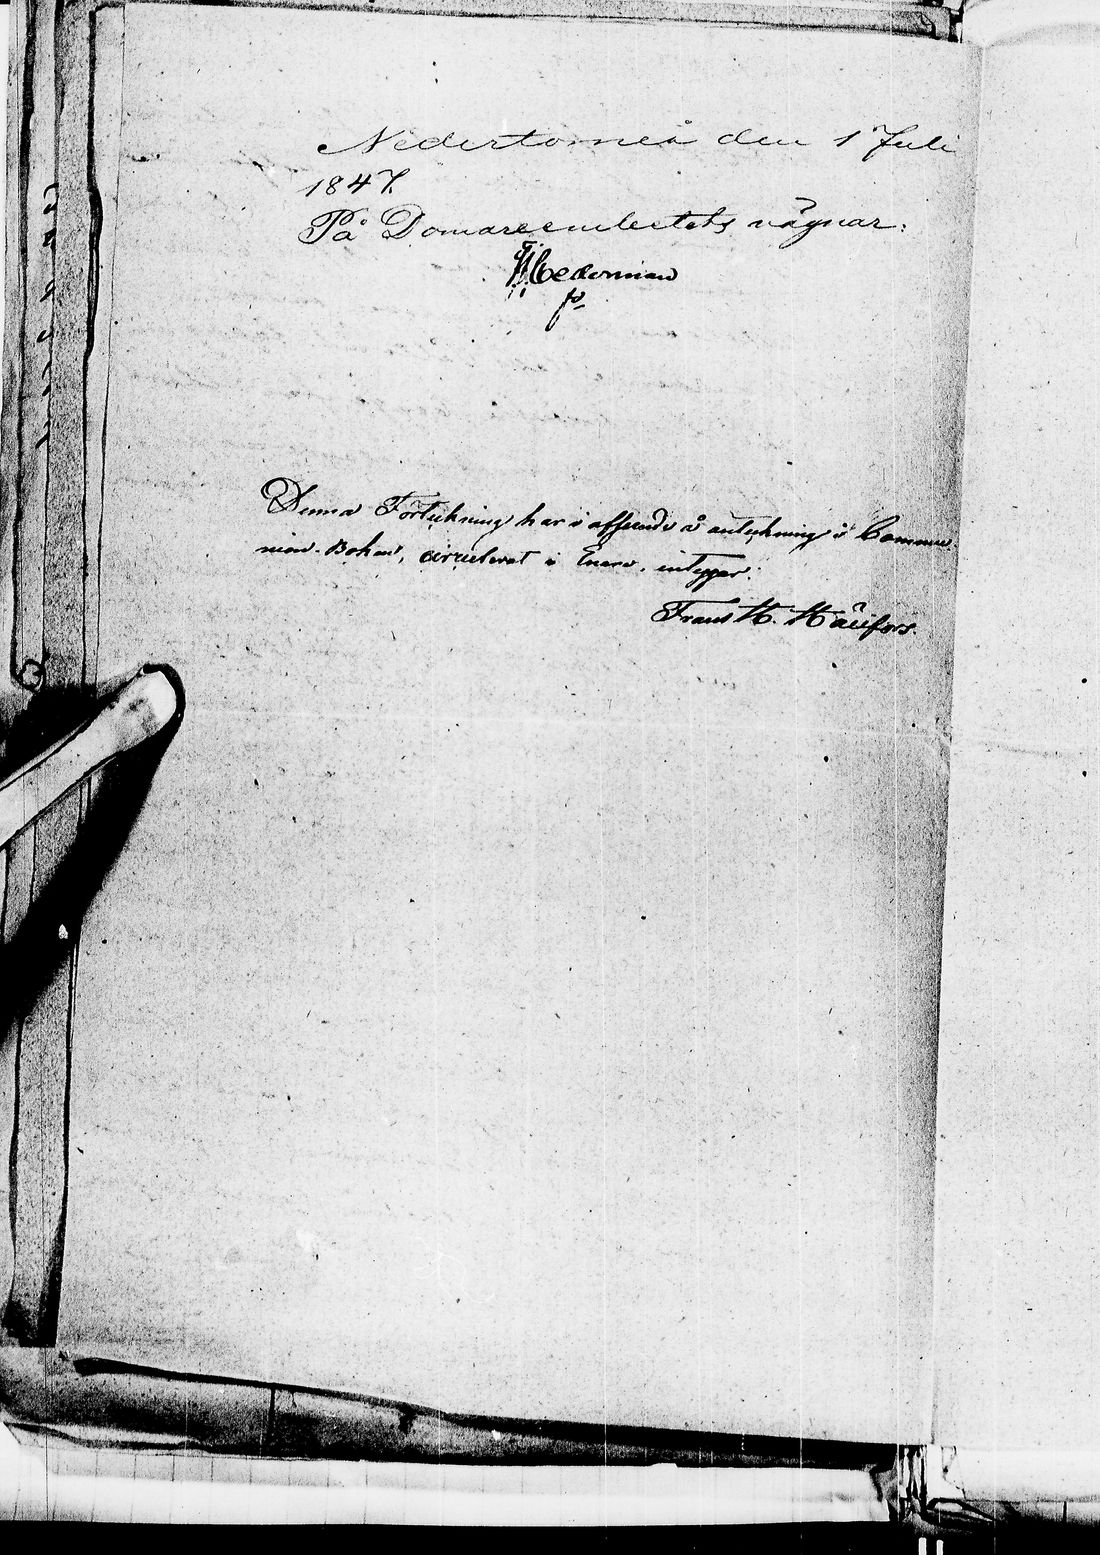 Nedertorneå den 1 Juli
1847.
På Domareembetets vägnar:
Cederman
Denna Förteckning har i afseende å anteckning i Commu-
nion-Boken, circulerat i Enare, intygar:
Frans H.